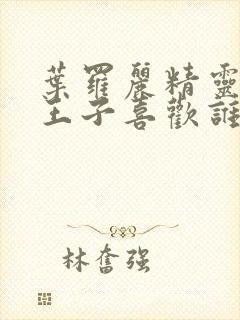 葉羅麗精靈
王子喜歡誰
林奮强